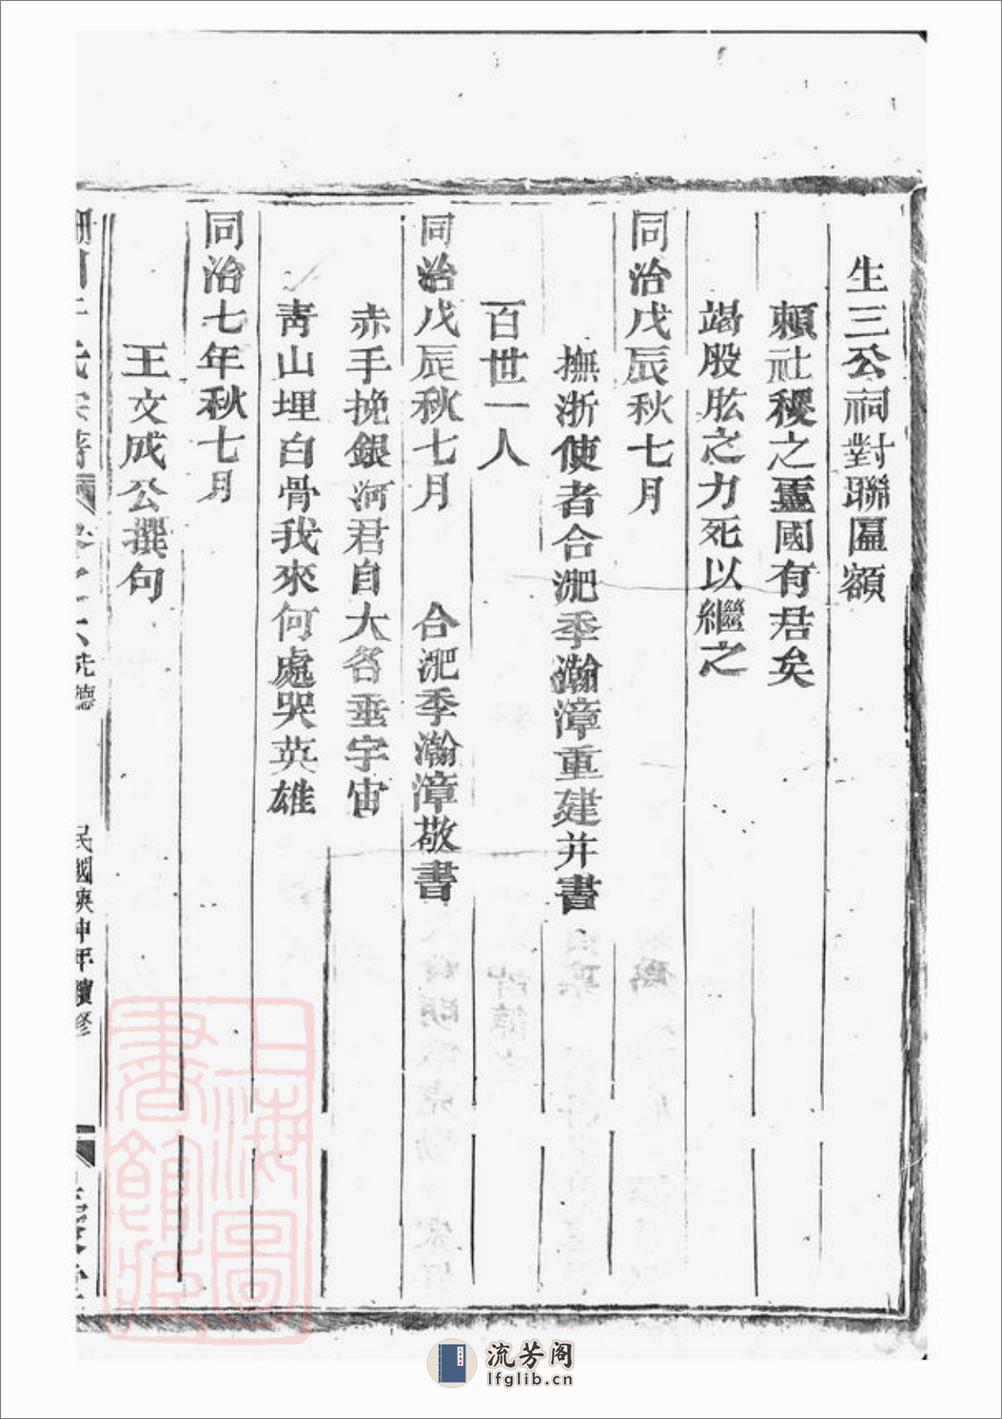 生三公祠對聯匾額
賴社稷之靈國有君矣
竭股肱之力死以繼之
同治戊辰秋七月
撫浙使者合淝季瀚漳重建并書
百世一人
同治戊辰秋七月 合淝季瀚漳敬書
赤手挽銀河君自大名垂宇宙
青山埋白骨我來何處哭英雄
同治七年秋七月
王文成公撰句
先德
民國庚申年續修
上海圖書館藏
流芳阁
lfglib.cn